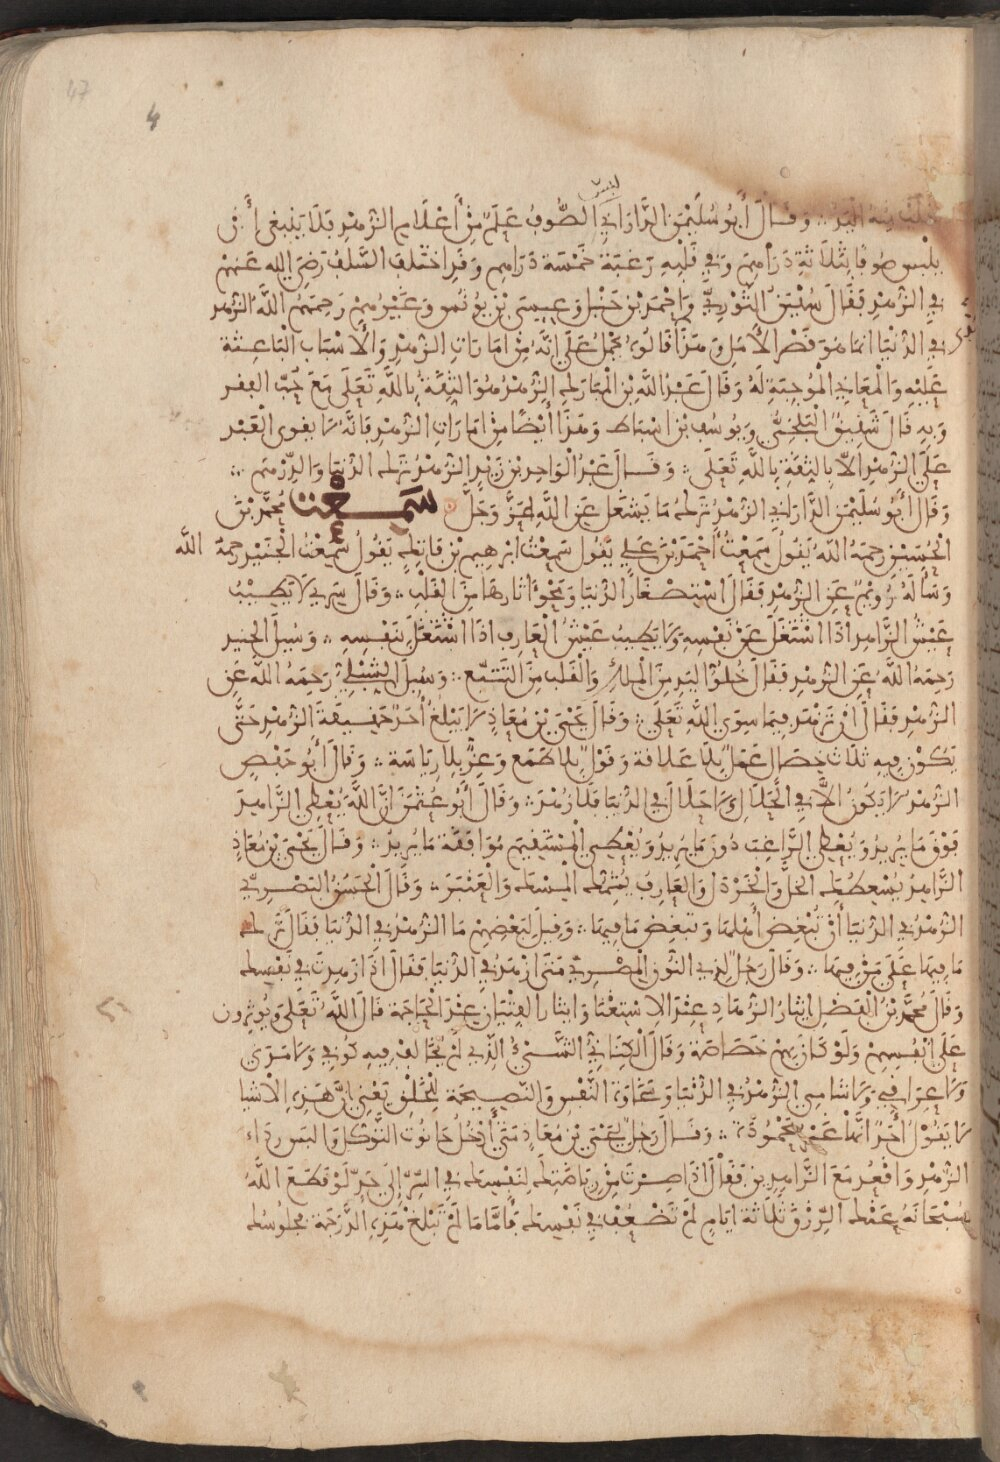 47
4
لبس
خلت منه اليد ∴ وَقَالَ أَبُو سُلَيْمَٰنَ الدَّارَانِي الصُّوفُ عَلَمٌ مِنْ أَعْلَامِ الزُّهْدِ فَلَا يَنْبَغِي أَنْ
يلْبس صُوفًا بِثَلَاثَةِ دَرَاهِمَ وَفِي قَلْبِهِ رَغْبَة خَمْسَة دَرَاهِم وَقَدِ اخْتَلَفَ السَّلَفُ رَضِيَ الله عَنهُمْ
فِي الزُّهْدِ فَقَالَ سُفْيَٰنُ الثَّوْرِيُّ وَأَحْمَدُ بْن حَنْبَل وَعِيسَى بْن يُونُس وَغَيْرُهُمْ رَحِمَهُمُ اللَّهُ الزُّهْد
فِي الدُّنْيَا انمَا هُوَ قَصْرُ الأَمَلِ وَهَذَا قَالُوهُ يُحْمَلُ عَلَى انَّهُ مِنْ امَارَاتِ الزُّهْدِ وَالأَسْبَابِ البَاعِثَةِ
عَلَيْهِ وَالْمَعَانِي الْمُوجِبَةِ لَهُ وَقَالَ عَبْدُ اللَّهِ بْن الْمُبَارَكِ الزُّهْدُ هُوَ الثِّقَةُ بِاللَّهِ تَعَلَى مَعَ حُبِّ الفقر
وَبِهِ قَالَ شَقِيقُ الْبَلْخِيُّ وَيُوسُف بْن اسْبَاط وَهَذَا أَيْضًا مِنْ امَارَاتِ الزُّهْدِ فَانَّهُ لَا يقوى الْعَبْد
عَلَى الزُّهْدِ الاّ بِالثِّقَةِ بِاللَّهِ تَعَلَى ∴ وَقَالَ عَبْدُ الْوَاحِدِ بْن زَيْدٍ الزُّهْدُ تَرْكُ الدُّنْيَا وَالدِّرْهَمِ ∴
وَقَالَ أَبُو سُلَيْمَٰنَ الدَّارَانِي الزُّهْدُ تَرْكُ مَا يَشْغَلُ عَنِ اللَّهِ عَزَّ وَجَلَّ سَمِعْتُ مُحَمَّدَ بْنَ
الْحُسَيْنِ رَحِمَهُ اللَّهُ يَقُولُ سَمِعْتُ أَحْمَدَ بْنَ عَلِي يَقُول سَمِعْتُ ابْرَهِيم بْن فَاتِكٍ يَقُولُ سَمِعْتُ الْجُنَيْدَ رحمهُ اللَّه
وَسَأَلَهُ رُوَيْمٌ عَنِ الزُّهْدِ فَقَالَ اسْتِصْغَارُ الدُّنْيَا وَمَحْوُ اثَارِهَا مِنَ القَلْبِ ∴ وَقَالَ سَرِي لَا يَطِيبُ
عَيْشُ الزَّاهِدِ اذَا اشْتَغَلَ عَنْ نَفْسِهِ وَلَا يَطِيبُ عَيْشُ الْعَارِفِ اذَا اشْتَغَلَ بِنَفْسِهِ ∴ وَسُيلَ الجنيد
رَحِمَهُ اللَّهُ عَنِ الزُّهْدِ فَقَالَ خُلُوُّ اليَدِ مِنَ الْمِلْكِ وَالْقَلْبِ مِنَ التَّتَبُّعِ ∴ وَسُيلَ الشِّبْلِيُّ رَحِمَهُ اللَّهُ عَنِ
الزُّهْدِ فَقَالَ انْ تَزْهَدَ فِيمَا سِوَى اللَّهِ تَعَلَى ∴ وَقَالَ يَحْيَى بْن مُعَاذٍ لَا يَبْلُغُ أَحَدٌ حَقِيقَةَ الزُّهْدِ حَتَّى
يَكُونَ فِيهِ ثَلَاث خِصَال عَمَلٌ بِلَا عَلَاقَة وَقَوْلٌ بِلَا طَمَع وَعِزٌّ بِلَا رِيَاسَة ∴ وَقَالَ أَبُو حَفْصٍ
الزُّهْدُ لَا يَكُونُ الاَّ فِي الْحَلَالِ وَلَا حَلَالَ فِي الدُّنْيَا فَلَا زُهْدَ ∴ وَقَالَ أَبُو عُثْمَٰنَ انَّ اللَّهَ يُعْطِي الزَّاهِدَ
فَوْقَ مَا يُرِيدُ وَيُعْطِي الرَّاغِبَ دُونَ مَا يُرِيدُ وَيُعْطِي الْمُسْتَقِيمَ مُوَافَقَةَ مَا يُرِيدُ ∴ وَقَالَ يَحْيَى بْنُ مُعَاذٍ
الزَّاهِدُ يُسْعِطُكَ الخَلَّ وَالْخَرْدَلَ وَالعَارِفُ يُشِمُّكَ الْمِسْكَ وَالْعَنْبَرَ ∴ وَقَالَ الْحَسَنُ البَصْرِيُّ
الزُّهْدُ فِي الدُّنْيَا أَنْ تُبْغِضَ أَهْلَهَا وَتُبْغِضَ مَا فِيهَا ∴ وَقِيلَ لِبَعْضِهِمْ مَا الزُّهْدُ فِي الدُّنْيَا فَقَالَ تَرْكُ
مَا فِيهَا عَلَى مَنْ فِيهَا ∴ وَقَالَ رَجُلٌ لِذِي النُّونِ الْمِصْرِيِّ مَتَى ازْهَدُ فِي الدُّنْيَا فَقَالَ اذَا زَهِدتَ فِي نَفْسِكَ
وَقَالَ مُحَمَّدُ بْنُ الْفَضْلِ ايثَارُ الزُّهَّادِ عِنْدَ الاِسْتِغْنَا وَايثَار الفِتْيَانِ عِنْدَ الْحَاجَة قالَ اللَّهُ تَعَلَى وَيُوثِرُونَ
عَلَى أَنْفُسِهِمْ وَلَوْ كَانَ بِهِمْ خَصَاصَة وَقَالَ الْكِتَّانِيُّ الشَّيْءُ الَّذِي لَمْ يُخَالِفْ فِيهِ كُوفِي وَلَا مَدَنِي
وَلَا عِرَاقِي وَلَا شَامِي الزُّهْدُ فِي الدُّنْيَا وَسَخَاوَةُ النَّفْسِ وَالنَّصِيحَةُ لِلْخَلْقِ يَعْنِي أَنَّ هَذِهِ الأَشْيَا
لَا يَقُولُ أَحَدٌ انَّهَا غَيْر مَحْمُودَة ∴ وَقَالَ رَجُلٌ لِيَحْيَى بْن مُعَاذٍ مَتَى أَدْخُلُ حَانُوتَ التَّوَكُّلِ وَالْبس رِدَاء
الزُّهْدِ وَاقْعُد مَعَ الزَّاهِدِينَ فَقَالَ اذَا صِرْتَ مِنْ رِيَاضَتِكَ لِنَفْسِكَ فِي السِّرِّ إِلَى حَدٍّ لَوْ قَطَعَ اللَّهُ
سُبْحَانَهُ عَنْكَ الرِّزْقَ ثَلَاثَةَ ايَّامٍ لَمْ تَضْعُفْ فِي نَفْسِكَ فَأَمَّا مَا لَمْ تَبْلُغْ هَذِهِ الدَّرَجَةَ فجلُوسُكَ